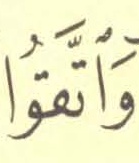 وَٱتَّقَوُا